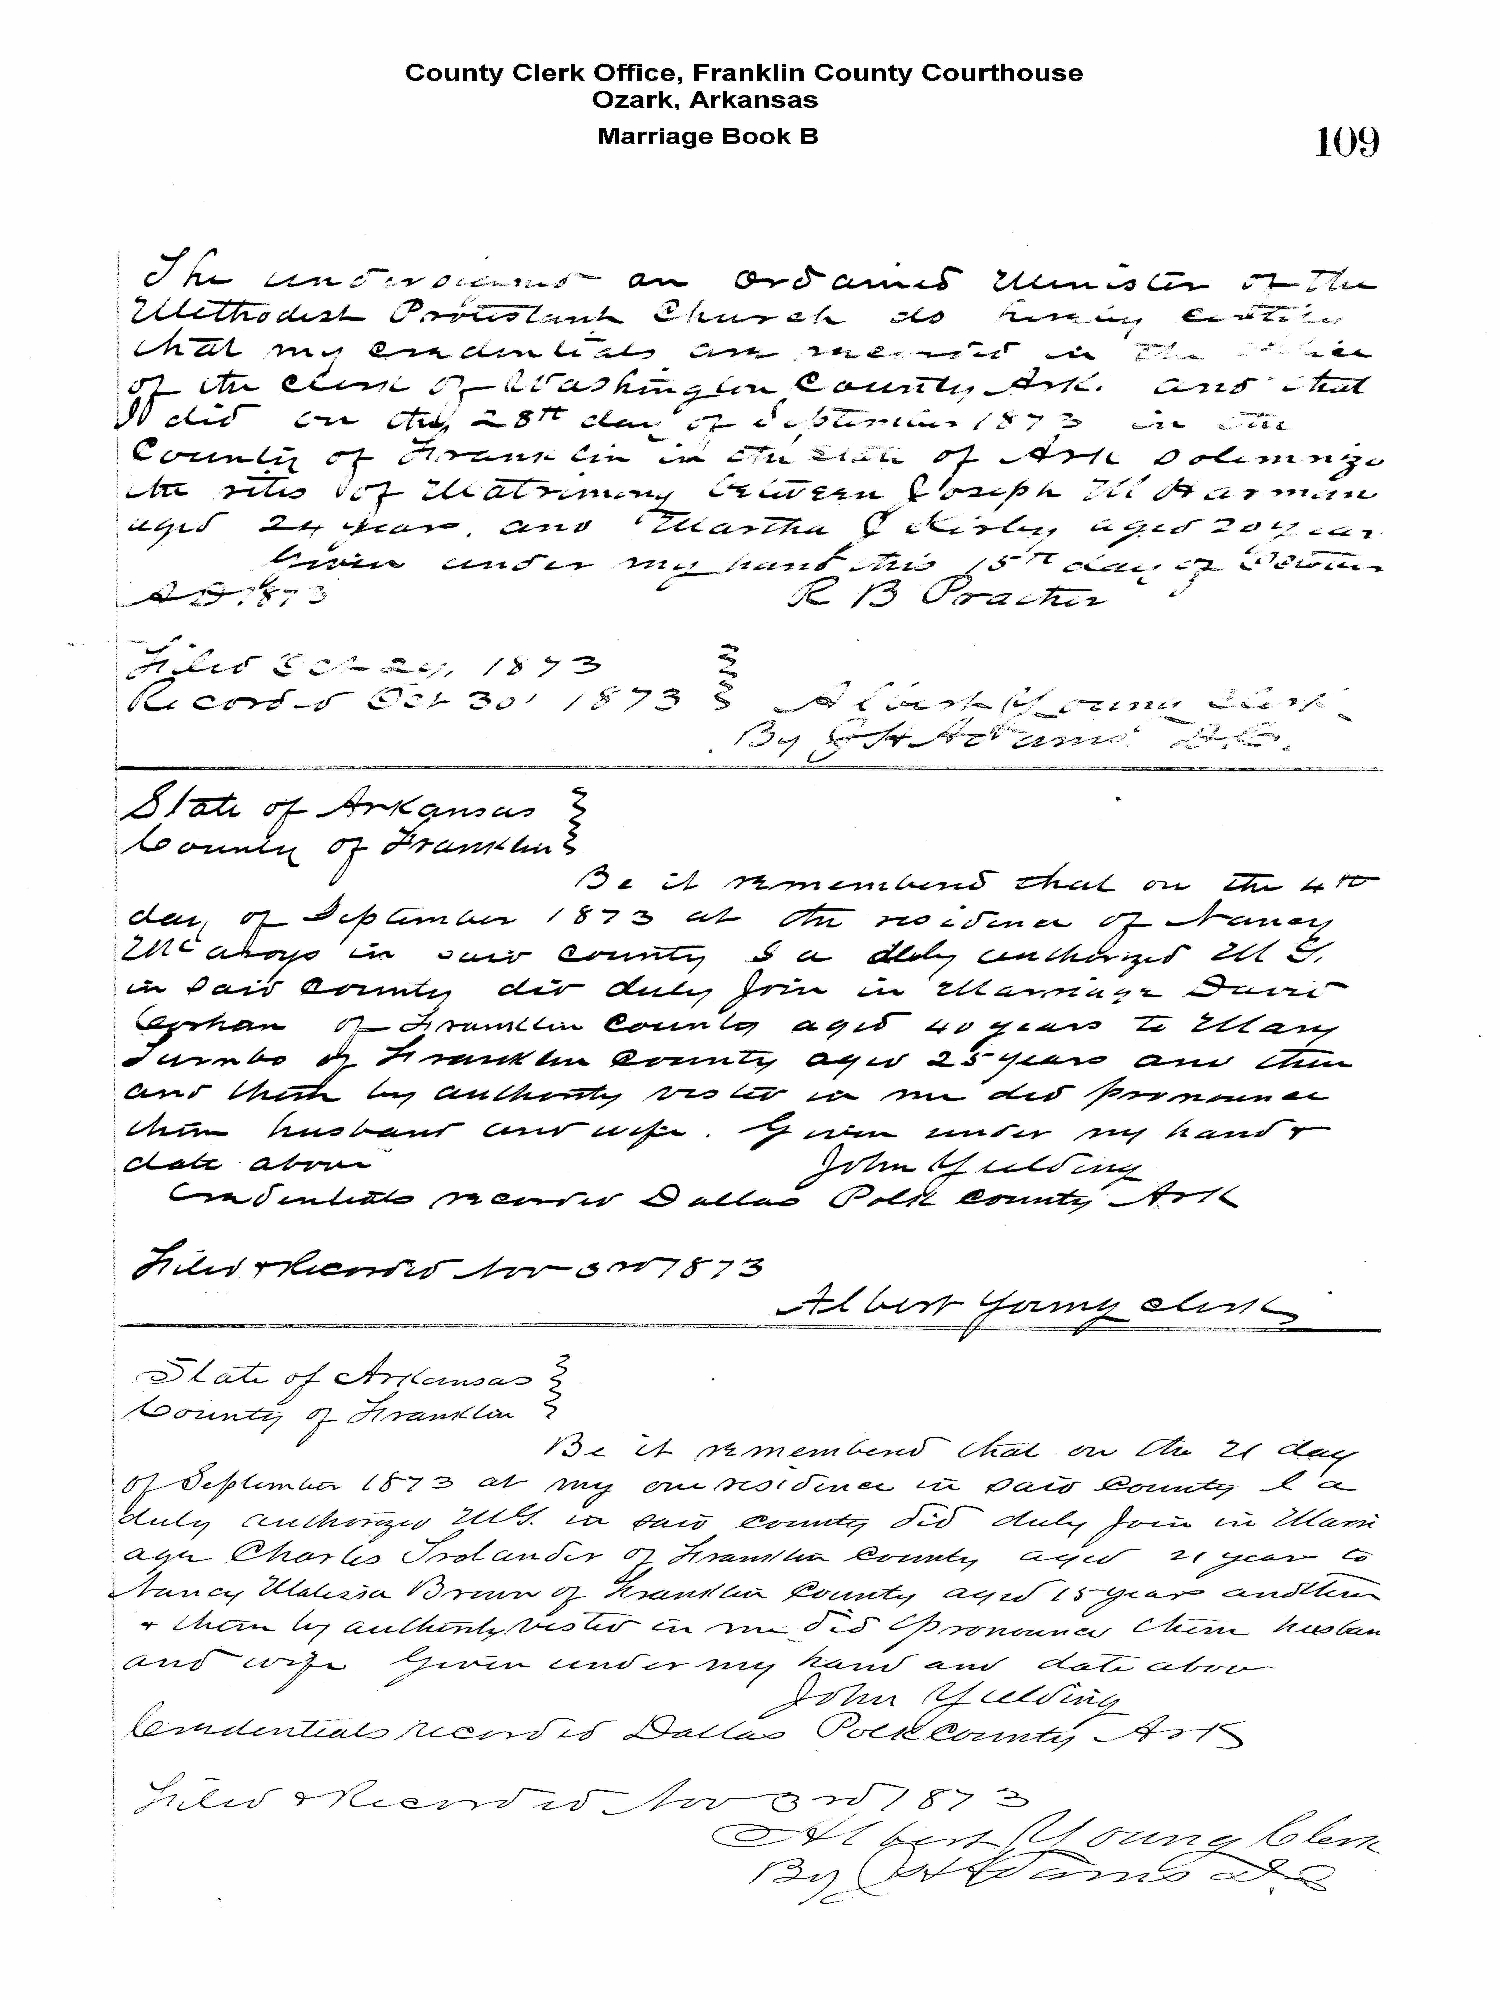 County Clerk Office, Franklin County Courthouse
Ozark, Arkansas
Marriage Book B
109
The undersigned an Ordained Minister of The
Methodist Protestant Church do hereby certify
that my credentials are recorded in the Office
of the clerk of Washington County, Ark. and that
I did on the 28th day of September 1873 in the
County of Franklin in the state of Ark Solemnize
the rites of Matrimony between Joseph M Harman
aged 24 years. and Martha J Kirby aged 20 year
Given under my hand this 15th day of October
A D. 1873 R B Prather
Filed Oct 29, 1873
Recorded Oct 30, 1873 Albert Young Clerk
By Adams D.C.
State of Arkansas
County of Franklin
Be it remembered that on the 4th
day of September 1873 at the residence of Nancy
in said County I a duly authorized M G.
in Said County did duly Join in Marriage David
of Franklin County aged 40 years to Mary
of Franklin County aged 25 years and then
and there by authority vested in me did pronounce
them husband and wife. Given under my hand &
date above John Yielding
Credentials recorded Dallas Polk County Ark
Filed & Recorded Nov 3rd 1873
Albert Young clerk
State of Arkansas
County of Franklin
Be it remembered that on the 21 day
of September 1873 at my own residence in said County I a
duly authorized M G. in said county did duly Join in Marri
age Charles of Franklin County aged 21 year to
Nancy Brown of Franklin County aged 15 year and then
& there by authority vested in me did pronounce them husban
and wife Given under my hand and date above
John Yielding
Credentials recorded Dallas Polk County Ark
Filed & Recorded Nov 3rd 1873
Albert Young Clerk
By Adams D.C